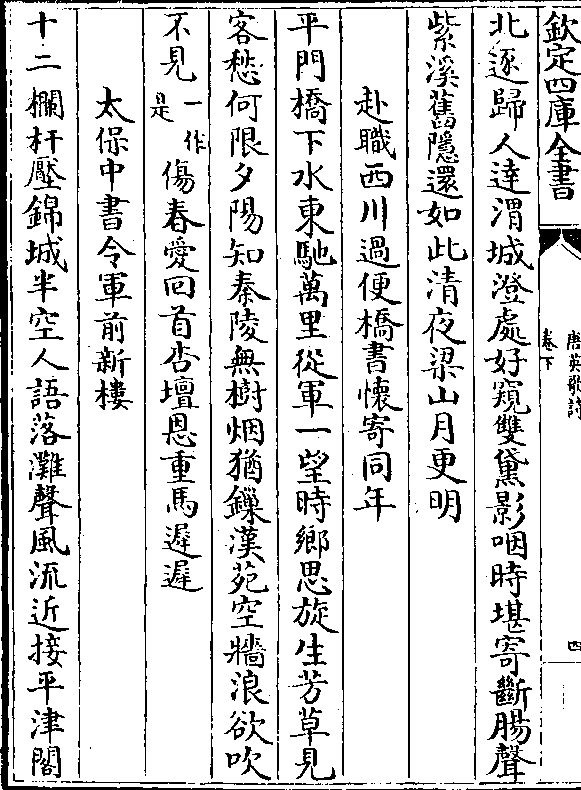 欽定四庫全書
唐英歌詩
卷下
四
北逐歸人達渭城澄處好窺雙黛影咽時堪寄斷腸聲
紫溪舊隱還如此清夜梁山月更明
赴職西川過便橋書懷寄同年
平門橋下水東馳萬里從軍一望時鄉思旋生芳草見
客愁何限夕陽知秦陵無樹烟猶鏁漢苑空牆浪欲吹
不見一作是傷春愛回首杏壇恩重馬遲遲
太保中書令軍前新樓
十二欄杆壓錦城半空人語落灘聲風流近接平津閣